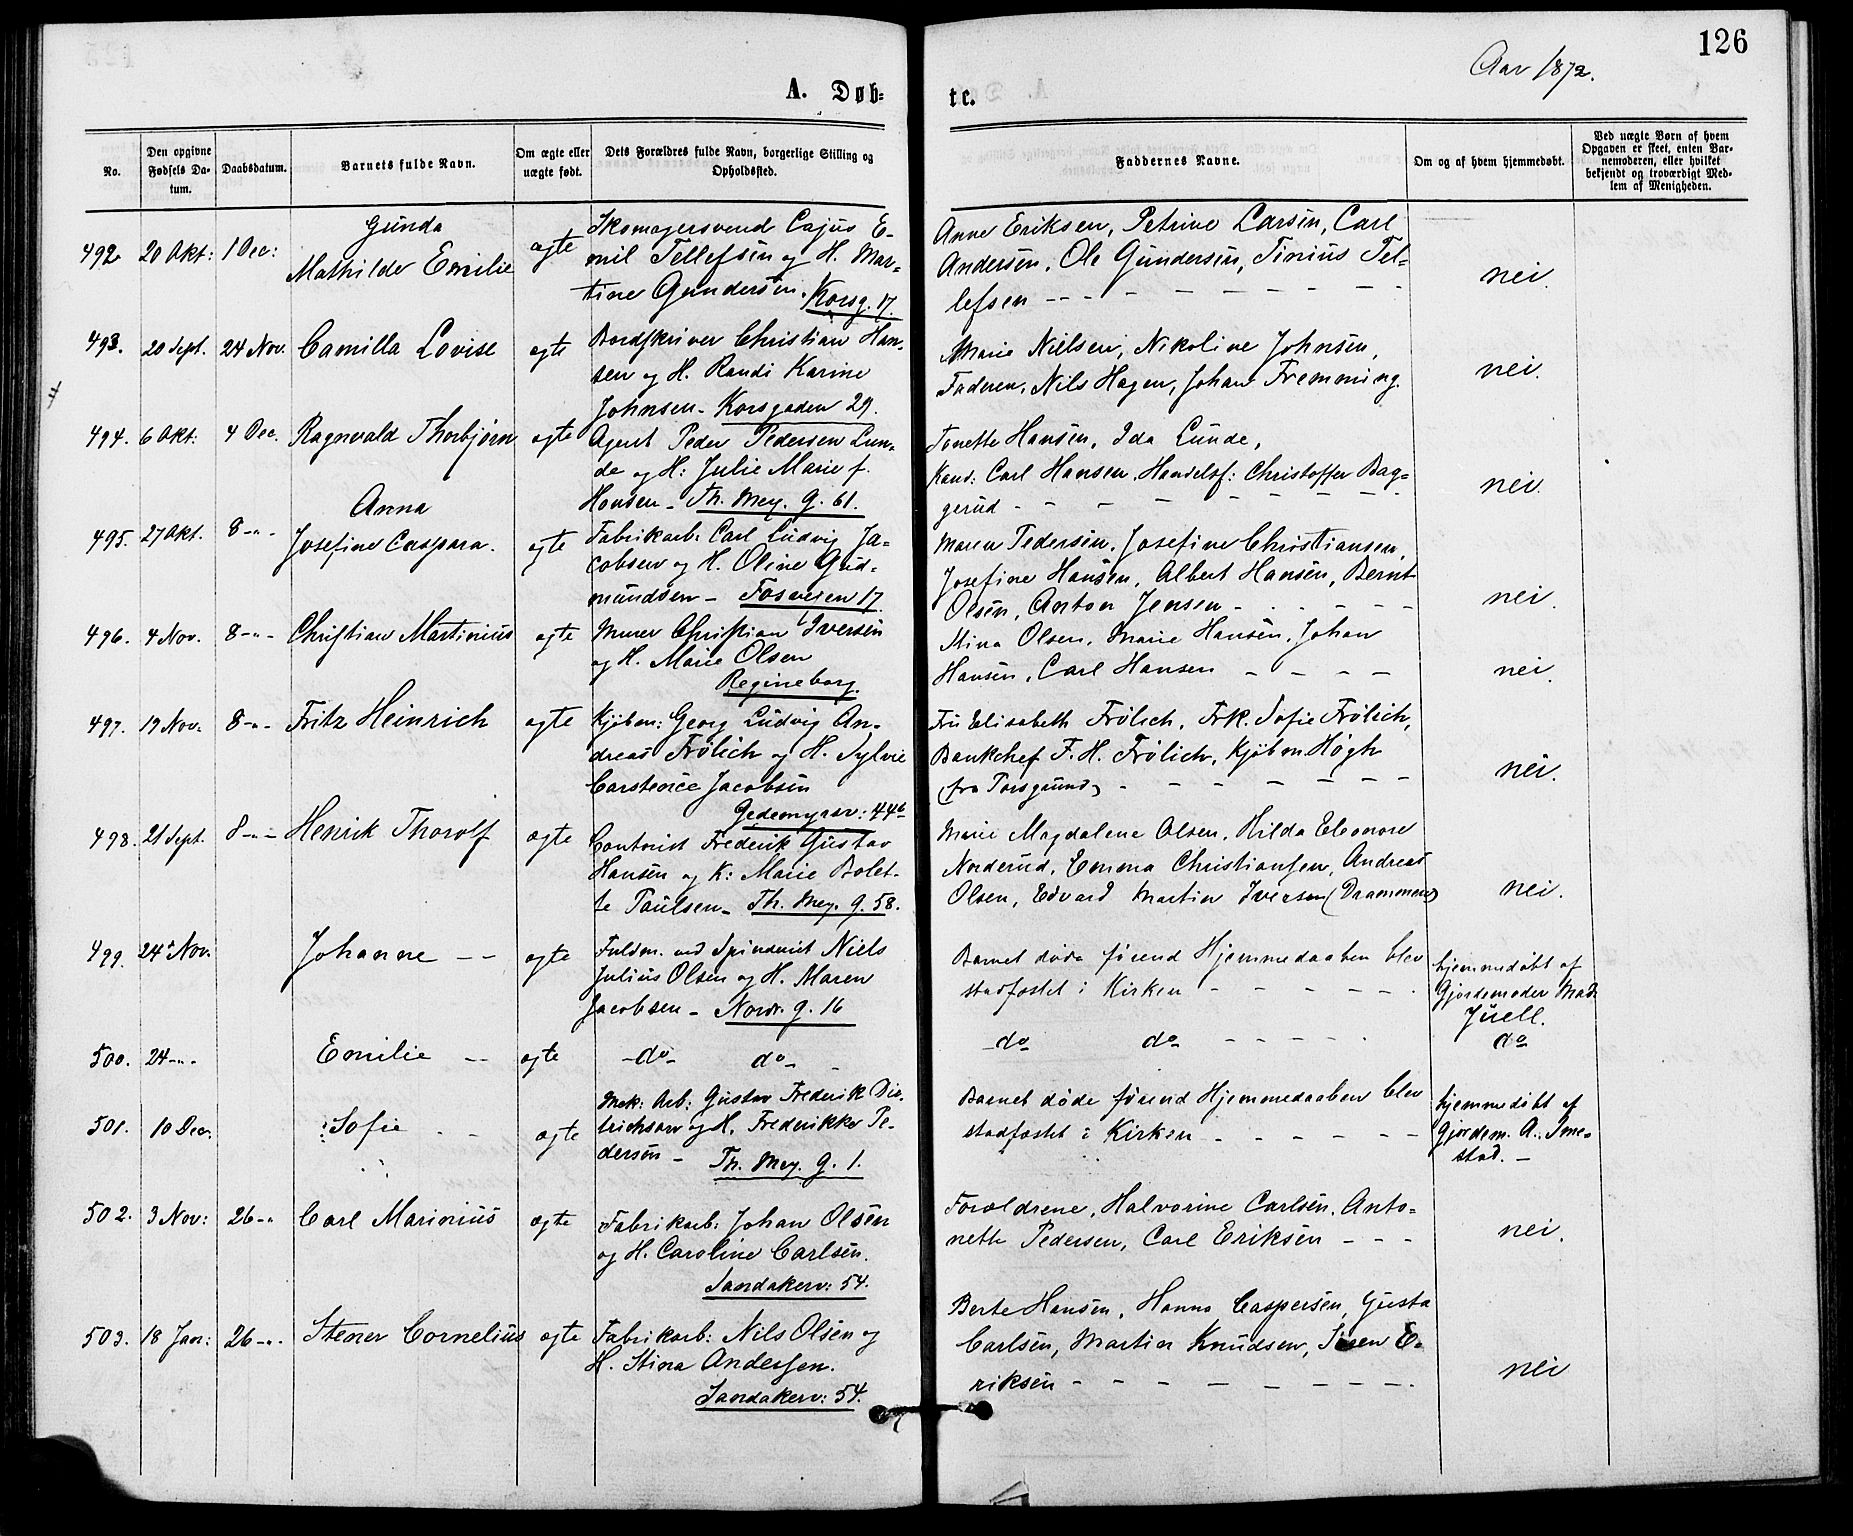 126
Aar 1872.
A. Døb=
te.
No.
Den opgivne Fødsels Datum.
Daabsdatum.
Barnets fulde Navn.
Om ægte eller uægte født.
Dets Forældres fulde Navn, borgerlige Stilling og Opholdssted.
Faddernes Navne.
Om og af hvem hjemmedøbt.
Ved uægte Børn af hvem Opgaven er skeet, enten Barnemoderen, eller hvilket bekjendt og troværdigt Medlem af Menigheden.
492. 20 Okt: 1 Dec:
Gunda
Mathilde Emilie
ægte
Skomagersvend Cajus E-
mil Tellefsen og H. Mar=
tine Gundersen. Korsg. 17.
Anne Eriksen, Petrine Larsen, Carl
Andersen, Ole Gundersen, Tinius Tel=
lefsen - - - - - - - - -
nei.
493. 20 Sept. 24 Nov. Camilla Lovise
ægte
Bordskriver Christian Han-
sen og H. Randi Karine
Johnsen - Korsgaden 29.
Marie Nielsen, Nikoline Johnsen,
Faderen, Nils Hagen, Johan Fremming.
nei.
494. 6 Okt: 4 Dec. Ragnvald Thorbjørn
ægte
Agent Peder Pedersen Lun-
de og H: Julie Marie f.
Hansen - Th. Mey. g. 61.
Tonette Hansen, Ida Lunde,
Kand: Carl Hansen, Handelsf: Christoffer Bag=
gerud - - - - - - - -
nei.
495. 27 Okt. 8 -"-
Anna
Josefine Caspara.
ægte
Fabrikarb: Carl Ludvig Ja=
cobsen og H. Oline Gud=
mundsen - Fosveien 17.
Maren Pedersen, Josefine Christiansen,
Josefine Hansen, Albert Hansen, Bernt
Olsen, Anton Jensen - - - - - -
nei.
496. 4 Nov. 8 -"- Christian Martinius
ægte
Murer Christian Iversen
og H. Marie Olsen
Regineborg.
Stina Olsen, Marie Hansen, Johan
Hansen, Carl Hansen - - - -
nei.
497. 19 Nov. 8 -"- Fritz Heinrich
ægte
Kjøbm: Georg Ludvig An-
dreas Frölich og H. Sylvie
Carstence Jacobsen
Gedemyrsv: 44b
Fru Elisabeth Frölich, Frk. Sofie Frölich,
Bankchef F. H. Frölich, Kjøbm Høgh
(fra Porsgrund) - - - - - -
nei.
498. 21 Sept. 8 -"- Henrik Thorolf
ægte
Contorist Frederik Gustav
Hansen og K: Marie Bolet-
te Paulsen - Th. Mey. g. 58.
Marie Magdalene Olsen, Hilda Eleonore
Norderud, Emma Christiansen, Andreas
Olsen, Edvard Martin Iversen (Drammen)
nei.
499. 24 Nov. Johanne - -
ægte
Fuldm. ved Spinderiet Niels
Julius Olsen og H. Maren
Jacobsen - Nordr. g. 16
Barnet døde førend Hjemmedaaben blev
stadfæstet i Kirken - - - - -
hjemmedøbt af
Gjordemoder Mad.
Juell.
500. 24 -"- Emilie - -
ægte
- do - do -
- do do - - - - -
do
501. 10 Dec. Sofie - -
ægte
Mek: Arb: Gustav Frederik Die-
trichson og H. Frederikke Pe-
dersen - Th. Mey. g. 1.
Barnet døde førend Hjemmedaaben blev
stadfæstet i Kirken - - - - - -
hjemmedøbt af
Gjordem. A. Sme-
stad. -
502. 3 Nov: 26 -" Carl Marinius
ægte
Fabrikarb: Johan Olsen
og H. Caroline Carlsen.
Sandakerv: 54.
Forældrene, Halvorine Carlsen, Anto-
nette Pedersen, Carl Eriksen - - -
nei.
503. 18 Jan: 26 -"- Stener Cornelius
ægte
Fabrikarb: Nils Olsen og
H. Stina Andersen.
Sandakerv: 54.
Berte Hansen, Hanna Caspersen, Gusta
Carlsen, Martin Knudsen, Sven E-
riksen - - - - - - - -
nei